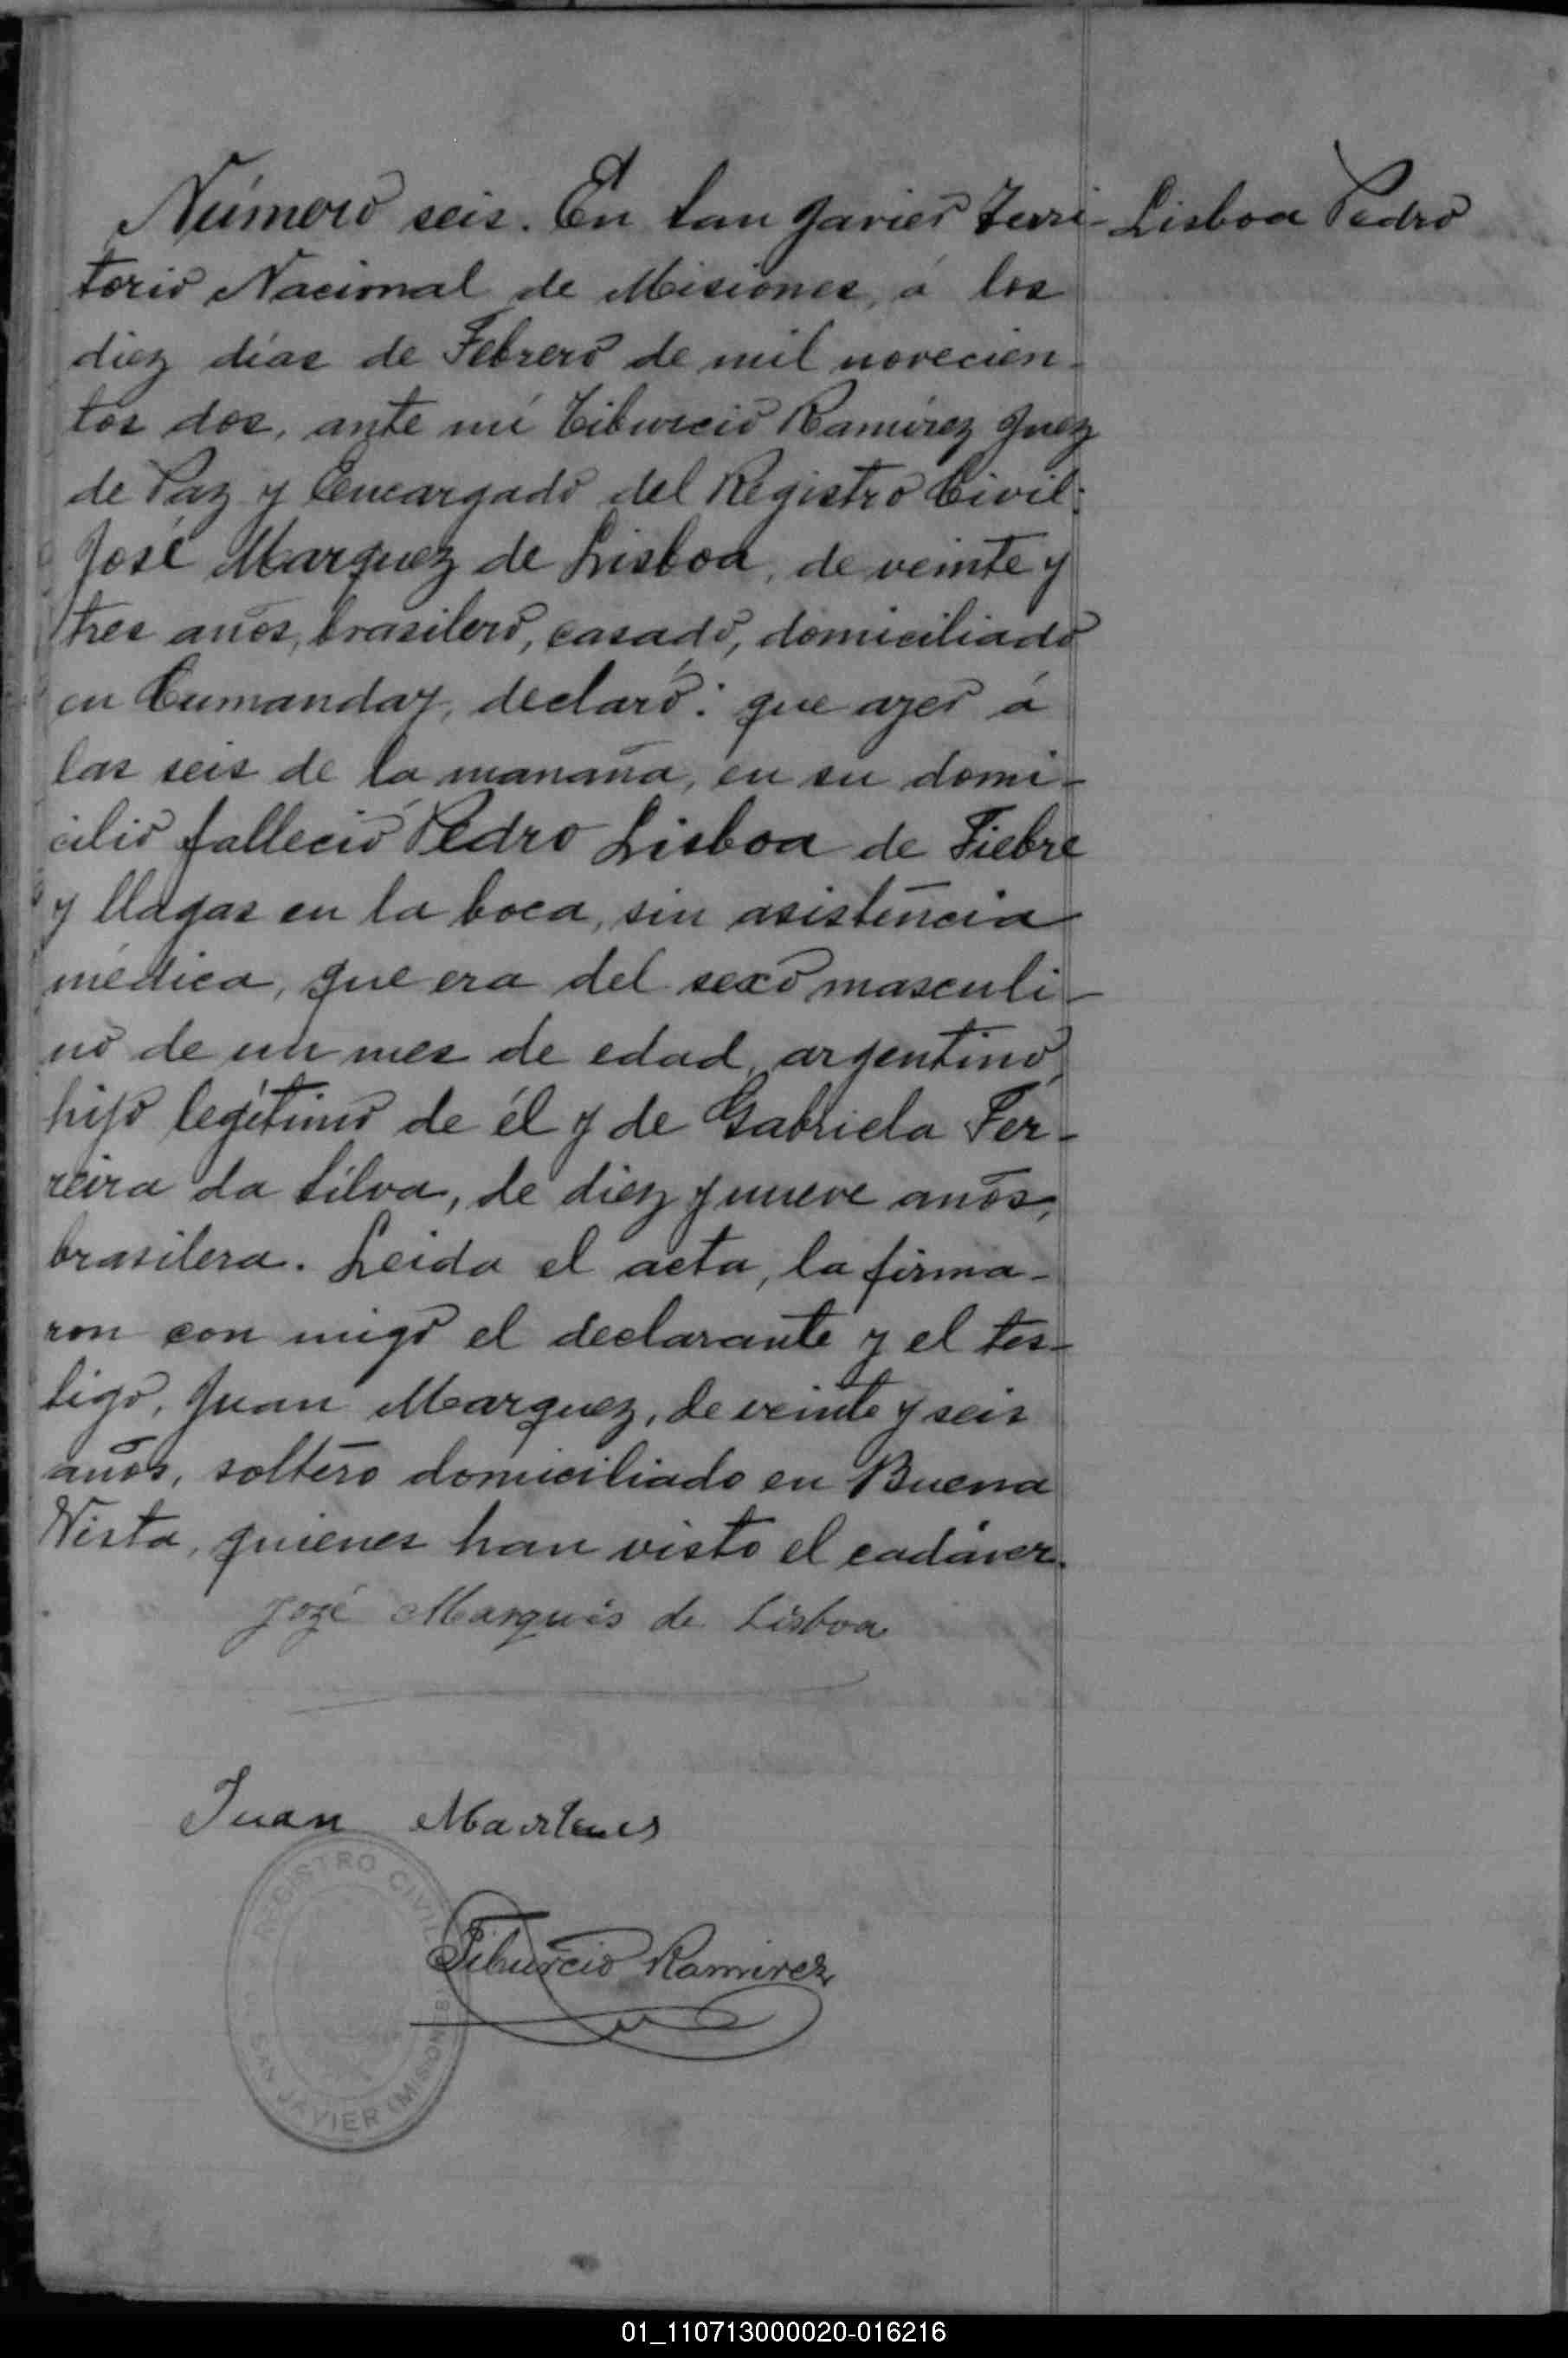 Número seis. En San Javier Terri- Lisboa Pedro
torio Nacional de Misiones, á los
diez días de Febrero de mil novecien-
tos dos, ante mí Tiburcio Ramírez Juez
de Paz y Encargado del Registro Civil:
José Marquez de Lisboa, de veinte y
tres años, brasilero, casado, domiciliado
en Cumanday, declaró: que ayer á
las seis de la mañana, en su domi-
cilio falleció Pedro Lisboa de Fiebre
y llagas en la boca, sin asistencia
médica, que era del sexo masculi-
no de un mes de edad, argentino,
hijo legítimo de él y de Gabriela Fer-
reira da Silva, de diez y nueve años,
brasilera. Leida el acta, la firma-
ron con migo el declarante y el tes-
tigo, Juan Marquez, de veinte y seis
años, soltero domiciliado en Buena
Vista, quienes han visto el cadáver.
Jozé Marquis de Lisboa
Juan
REGISTRO CIVIL
Tiburcio Ramirez
SAN JAVIER (MISIONES)
01_110713000020-016216